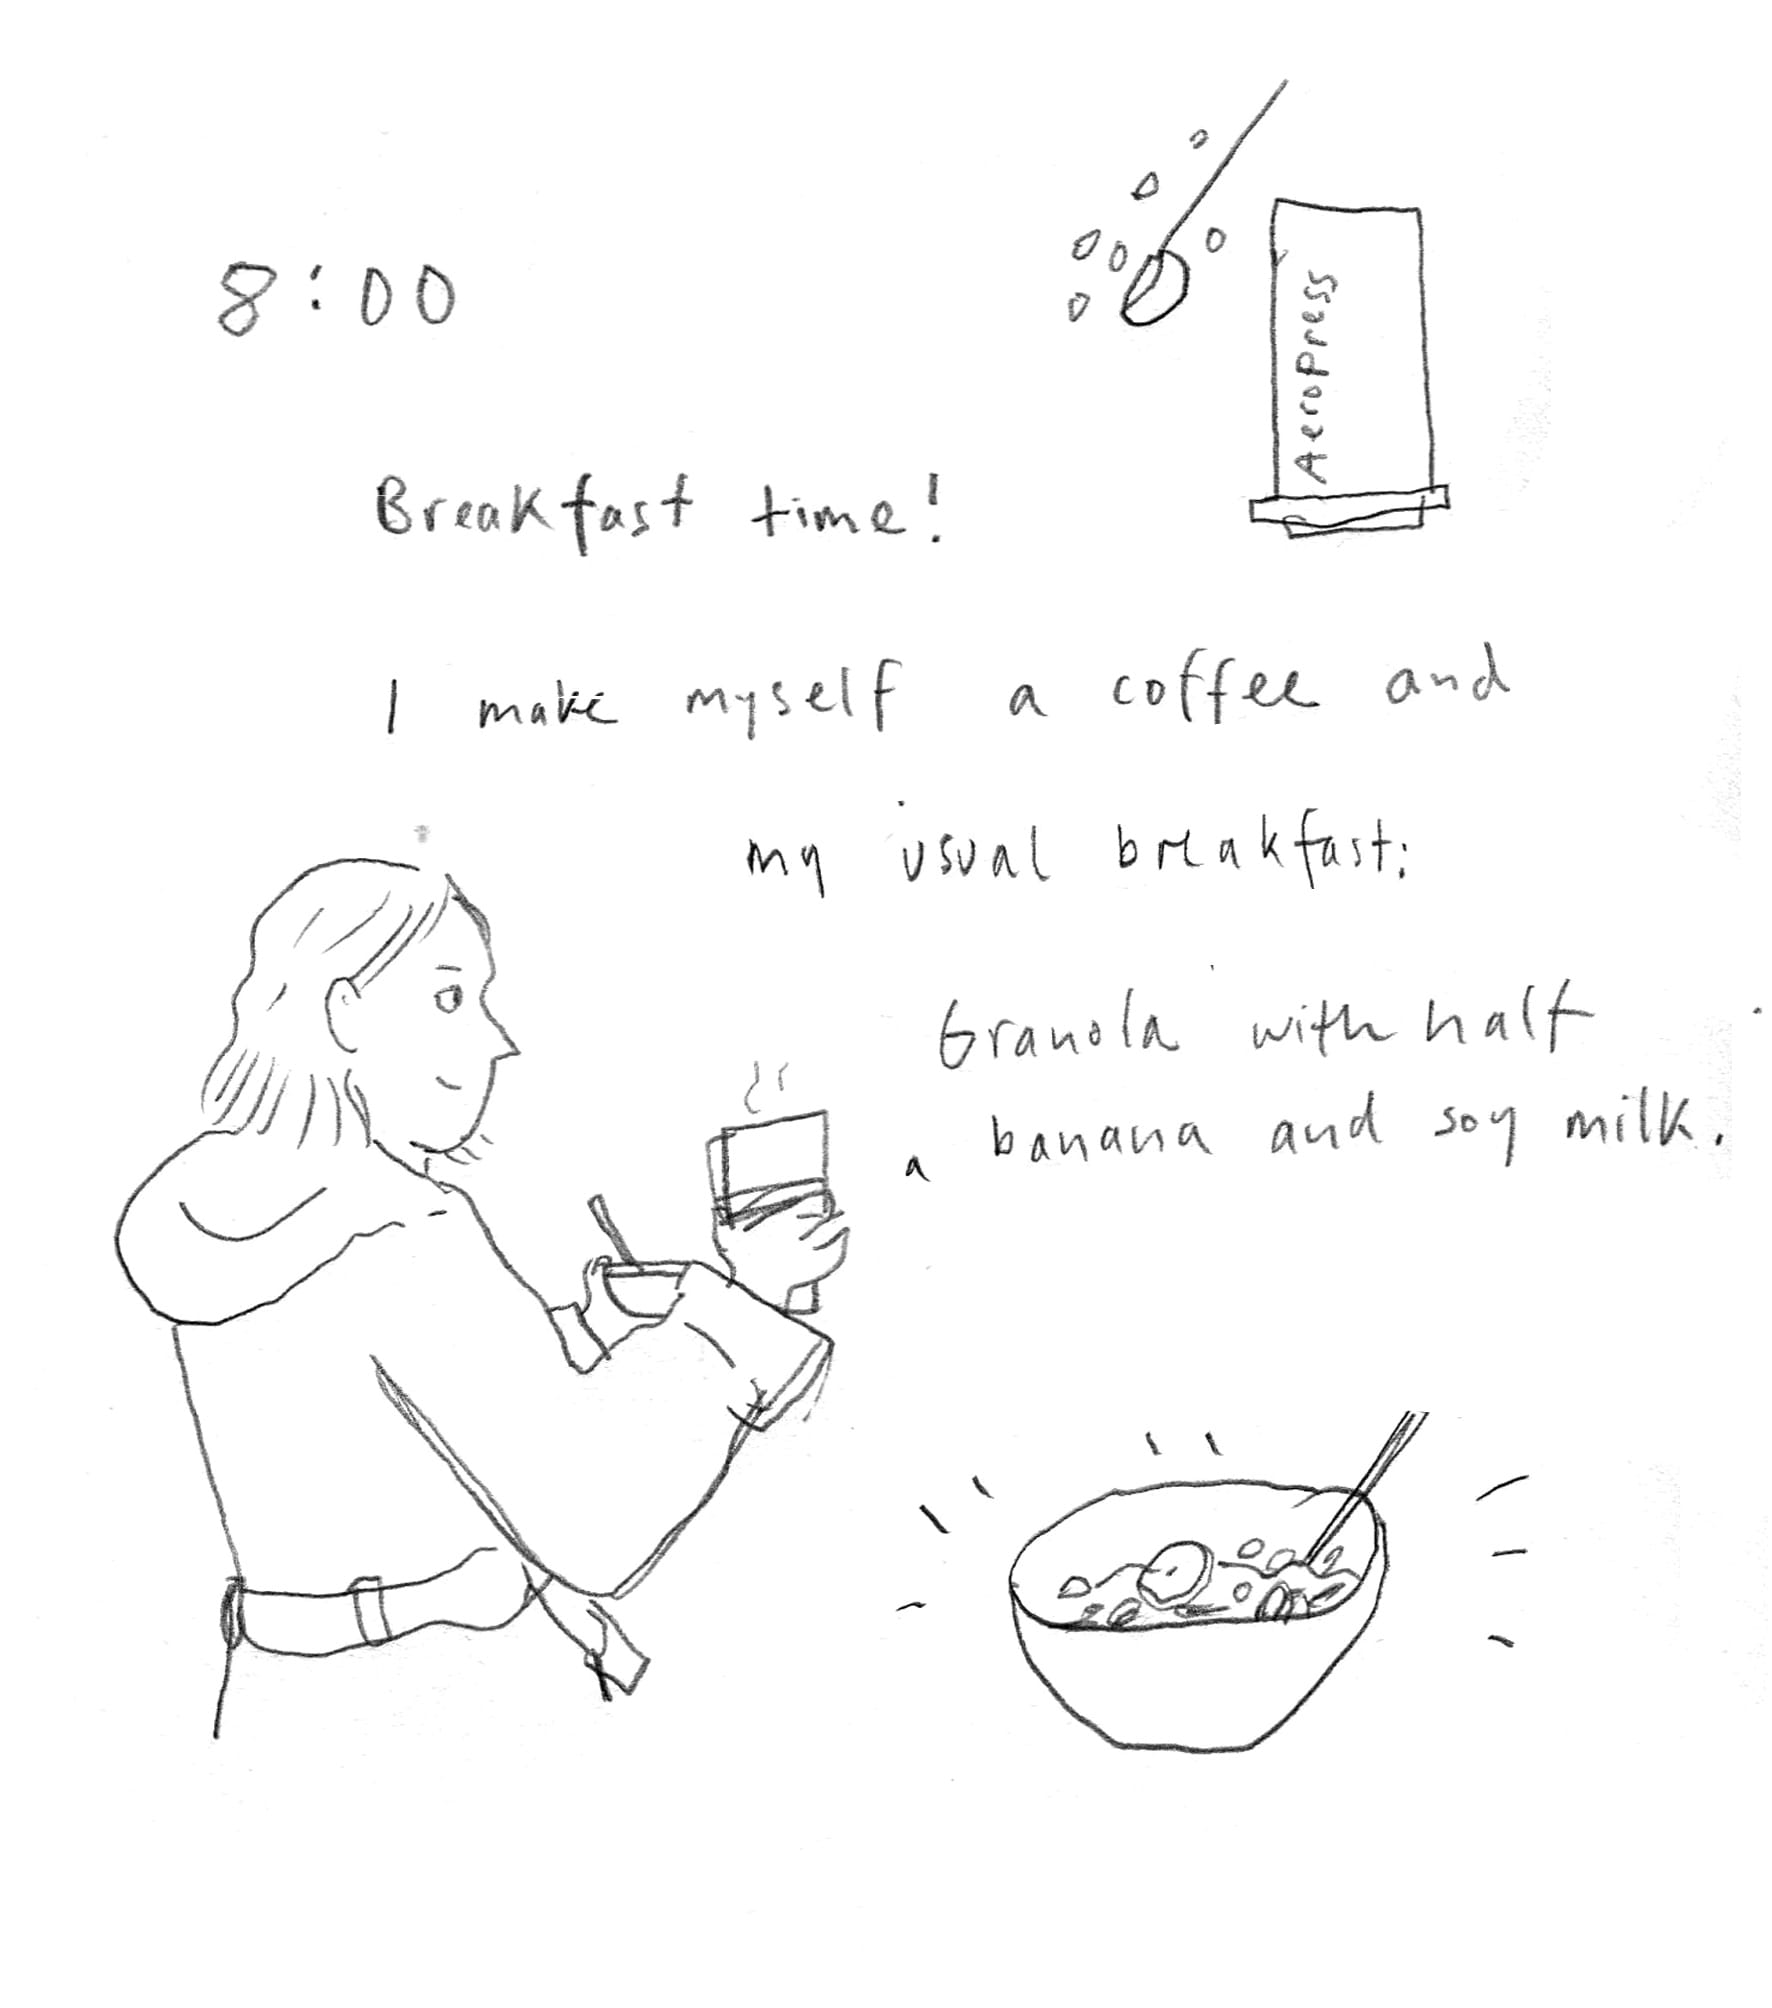 8:00
AeroPress
Breakfast time!
I make myself a coffee and
my usual breakfast:
Granola with half
a banana and soy milk.